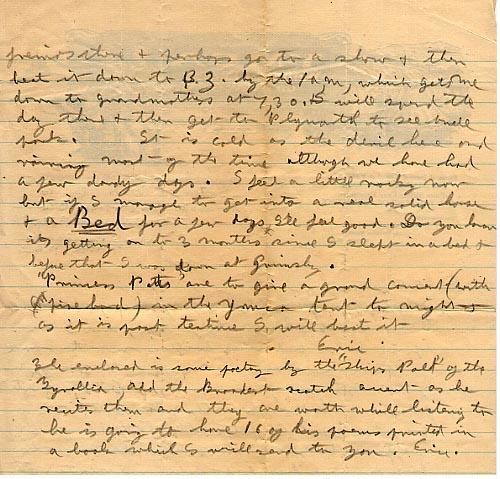 friends there & perhaps go to a show & then
beat it down to B.Z. by the 1 a.m, which gets me
down to grandmothers at 7,30. I will spend the
day there & then get to Plymouth to see Uncle
It is cold as the devil here and
raining most of the time although we have had
a few dandy days. I feel a little rocky now
but if I manage to get into a real solid house
& a Bed for a few days I'll feel good. Do you know
its getting on to 3 months since I slept in a bed &
before that I was down at Grimsby.
"Princess Pats" are to give a grand concert (with
band) in the Y.M.C.A tent to night
as it is past I will beat it
Eric
The enclosed is some poetry by the "Ships Poet" of the
Tyrolia, add the Broadest scotch accent as he
recites them and they are worth while listening to
he is going to have 16 of his poems printed in
a book which I will send to you. Eric.